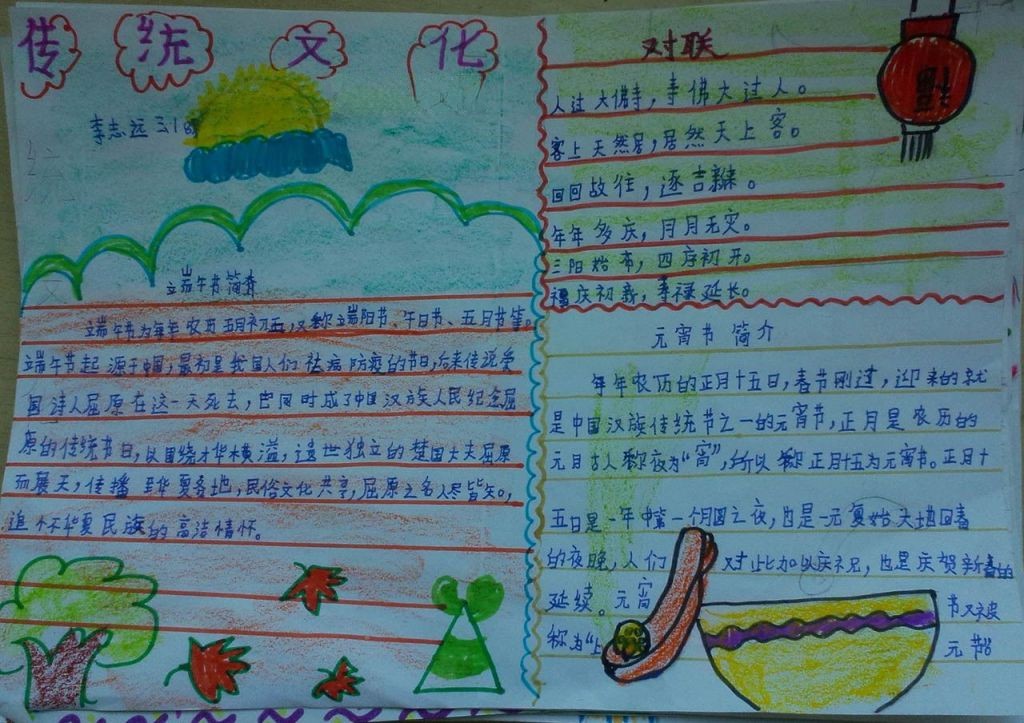 传统文化
李志远 三1班
端午节简介
端午节为每年农历五月初五,又称端阳节、午日节、五月节等。
端午节起源于中国,最初是我国人们祛病防疫的节日,后来传说爱
国诗人屈原在这一天死去,也同时成了中国汉族人民纪念屈
原的传统节日,以围绕才华横溢,遗世独立的楚国大夫屈原
而展天,传播至华夏各地,民俗文化共享,屈原之名人尽皆知,
追怀华夏民族的高洁情怀。
对联
人过大佛寺,寺佛大过人。
客上天然居,居然天上客。
回回故往,逐吉新来。
年年多庆,月月无灾。
三阳始布,四序初开。
福庆初新,寿禄延长。
元宵节 简介
每年农历的正月十五日,春节刚过,迎来的就
是中国汉族传统节之一的元宵节,正月是农历的
元月古人称夜为“宵”,所以称正月十五为元宵节。正月十
五日是一年中第一个月圆之夜,也是一元复始大地回春
的夜晚,人们对此加以庆祝,也是庆贺新春的
延续。元宵节又被
称为“上元节”